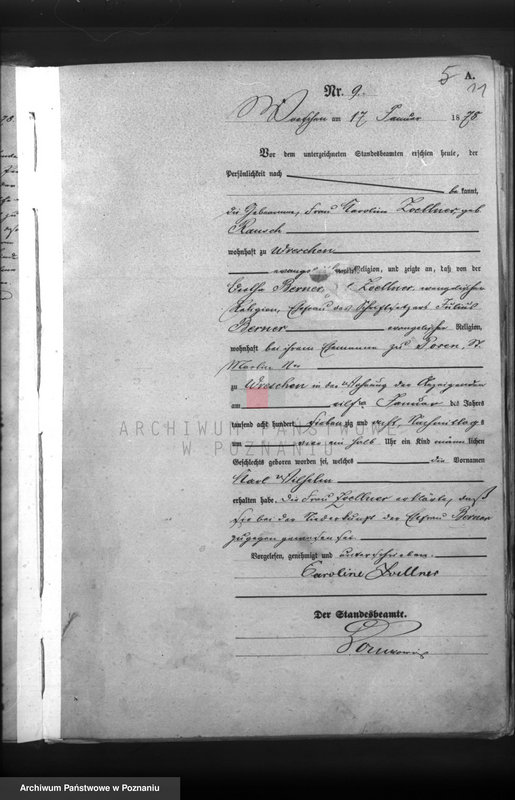 5 A.
11
Nr. 9.
Wreschen am 17 Januar 1878
Vor dem unterzeichneten Standesbeamten erschien heute, der
Persönlichkeit nach
be kannt,
die Hebeamme, Frau Karoline Zoellner, geb.
Rausch
wohnhaft zu Wreschen
evangelischer Religion, und zeigte an, daß von der
Berner, Zoellner, evangelischer
Religion, Ehefrau des Schriftsetzers Julius
Berner evangelischer Religion,
wohnhaft bei ihrem Ehemanne zu Posen, St.
Martin No
zu Wreschen in der Wohnung der Anzeigenden
am elften Januar des Jahres
tausend acht hundert siebenzig und acht, Nachmittags
um vier ein halb Uhr ein Kind männlichen
Geschlechts geboren worden sei, welches die Vornamen
Karl Wilhelm
erhalten habe. Die Frau Zoellner erklärte, daß
sie bei der Niederkunft der Ehefrau Berner
zugegen gewesen sei.
Vorgelesen, genehmigt und unterschrieben.
Caroline Zoellner
Der Standesbeamte.
ARCHIWUM PAŃSTWOWE
W POZNANIU
Archiwum Państwowe w Poznaniu